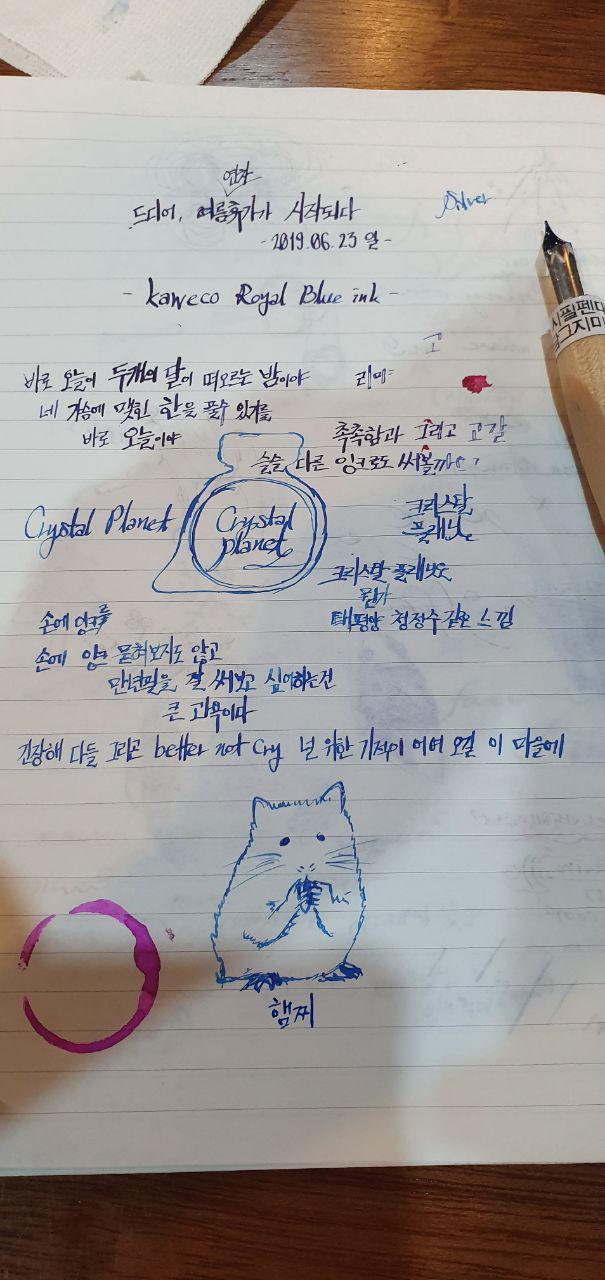 연차
드디어, 여름휴가가 시작되다
Silver
- 2019.06.23 일 -
- Kaweco Royal Blue ink -
고
바로 오늘이 두개의 달이 떠오르는 밤이야
리에
네 가슴에 맺힌 한을 풀수 있기를
바로 오늘이야
촉촉함과 그리고 고갈
슬슬 다른 잉크로도 써볼까?
Crystal Planet
Crystal
planet
크리스탈
플래닛
크리스탈 플래닛도
뭔가
태평양 청정수같은 느낌
손에 잉크를
손에 잉크 묻혀보지도 않고
만년필을 잘 써보고 싶어하는건
큰 과욕이다
긴장해 다들 그리곤 better not cry 널 위한 기적이 어서 오길 이 마을에
햄찌
시필펜대